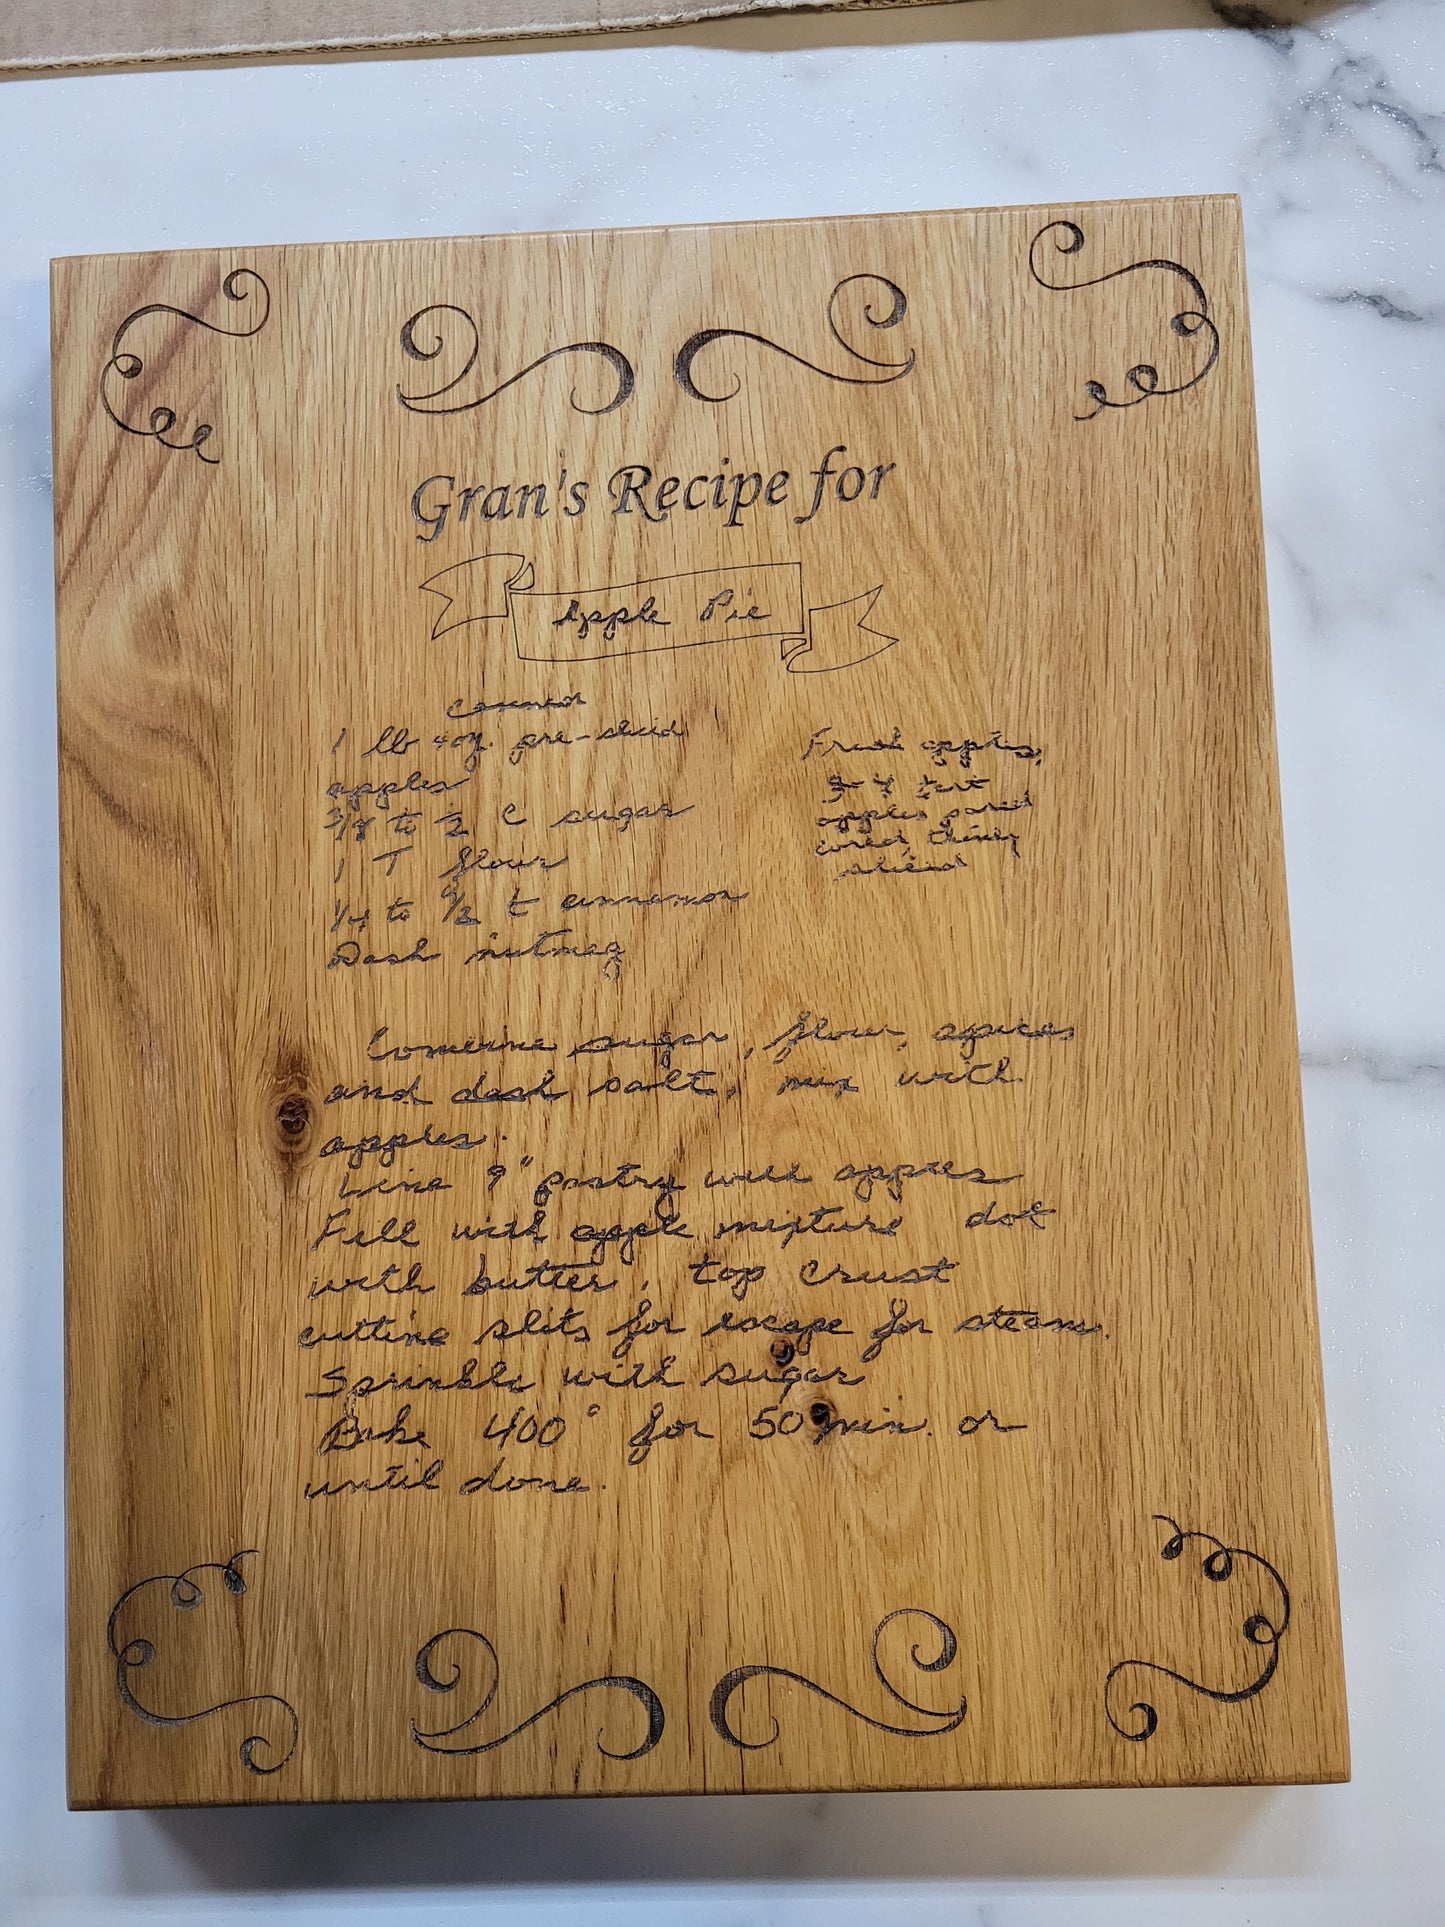 Gran's Recipe for
Apple Pie
canned
1 lb 4 oz. pre-sliced
apples
3/8 to 1/2 C sugar
1 T flour
1/4 to 1/2 t cinnamon
Dash nutmeg
Fresh apples,
3-4 tart
apples pared
cored, thinly
sliced
Combine sugar, flour, spices
and dash salt, mix with
apples.
Line 9" pastry with apples
Fill with apple mixture dot
with butter, top crust
cutting slits for escape for steam.
Sprinkle with sugar
Bake 400° for 50 min. or
until done.